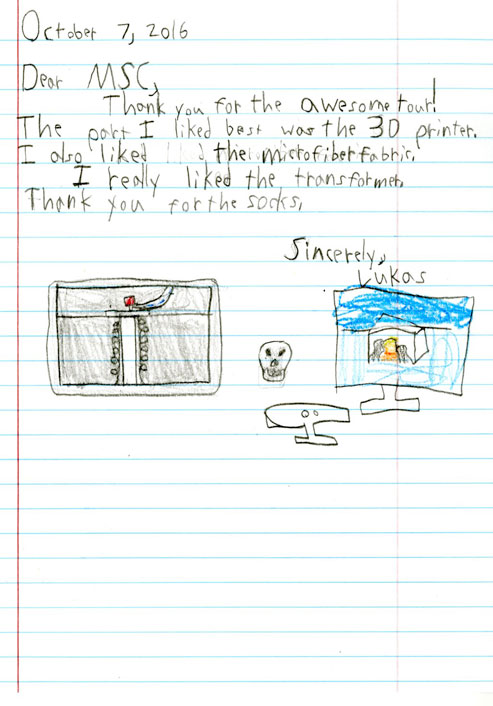 October 7, 2016
Dear MSC,
Thank you for the awesome tour!
The part I liked best was the 3D printer.
I also liked the microfiber fabric.
I really liked the transformer.
Thank you for the socks.
Sincerely,
Lukas